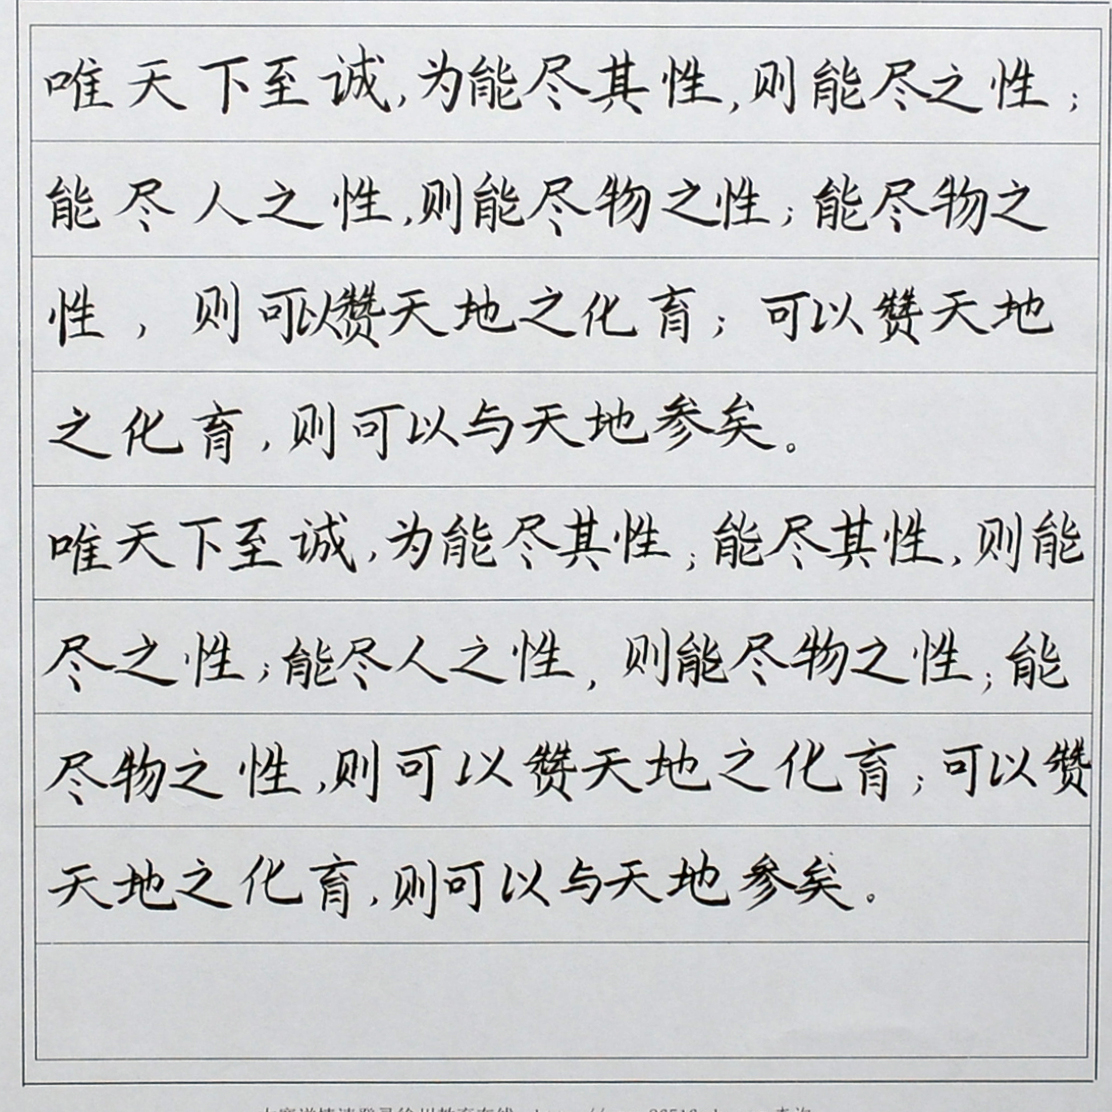 唯天下至诚,为能尽其性,则能尽之性;
能尽人之性,则能尽物之性;能尽物之
性,则可以赞天地之化育;可以赞天地
之化育,则可以与天地参矣。
唯天下至诚,为能尽其性;能尽其性,则能
尽之性;能尽人之性,则能尽物之性;能
尽物之性,则可以赞天地之化育;可以赞
天地之化育,则可以与天地参矣。